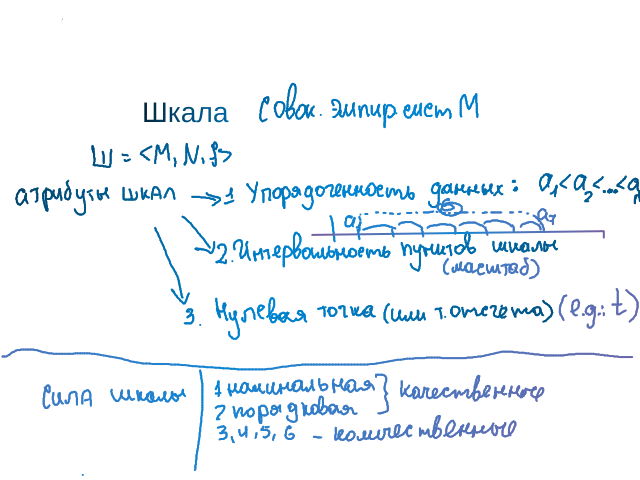 Шкала Совок. эмпир сист M
Ш = <M, N, f>
атрибуты шкал → 1 Упорядоченность данных: a₁<a₂<...<aₙ
a₁ 6 a₇
2. Интервальность пунктов шкалы
(масштаб)
3. Нулевая точка (или т. отсчета) (e.g.: t)
Сила шкалы 1 номинальная
2 порядковая } качественные
3, 4, 5, 6 – количественные